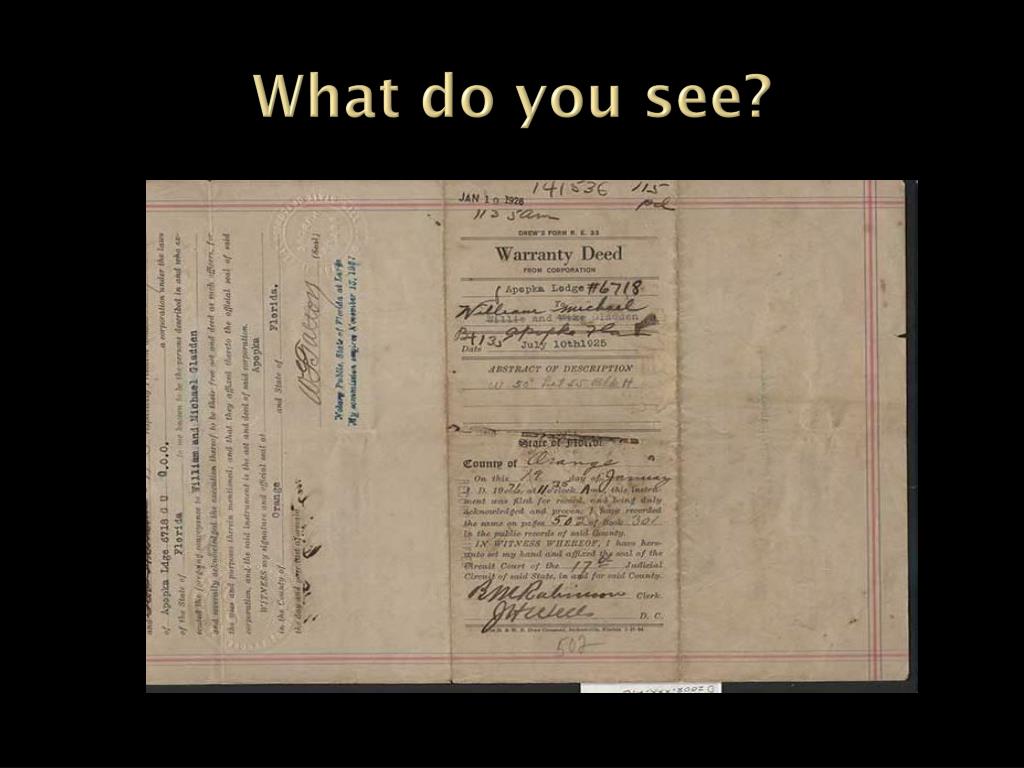 What do you see?
141536 115
JAN 10 1926 pd
11 35 am
DREW'S FORM R. E. 33
Warranty Deed
FROM CORPORATION
Apopka Lodge #6718
To
William Michael
Willie and Gladden
Apopka Fla
Date July 10th1925
ABSTRACT OF DESCRIPTION
State of Florida
County of Orange
On this 12 day of January
A. D. 19 at 11 35 o'clock Am, this instru-
ment was filed for record, and being duly
acknowledged and proven, I have recorded
the same on pages 502 of Book 301
in the public records of said County.
IN WITNESS WHEREOF, I have here-
unto set my hand and affixed the seal of the
Circuit Court of the 17th Judicial
Circuit of said State, in and for said County.
B M Robinson Clerk.
D. C.
502
a corporation under the laws
of Apopka Ldge 6718 G U O.O.O.
of the State of Florida to me known to be the persons described in and who ex-
ecuted the foregoing conveyance to William and Michael Gladden
and severally acknowledged the execution thereof to be their free act and deed as such officers, for
the uses and purposes therein mentioned; and that they affixed thereto the official seal of said
corporation, and the said instrument is the act and deed of said corporation.
WITNESS my signature and official seal at Apopka
in the County of Orange and State of Florida,
the day and year
(Seal)
Notary Public, State of Florida at Large
My commission expires November 15, 1927